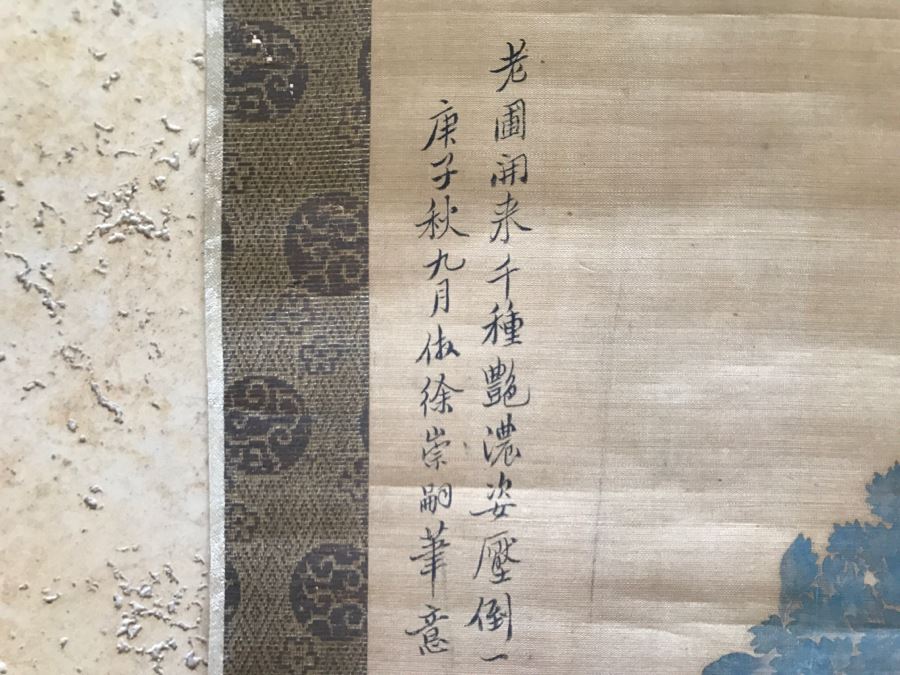 老圃開来千種艶濃姿壓倒一
庚子秋九月倣徐崇嗣筆意